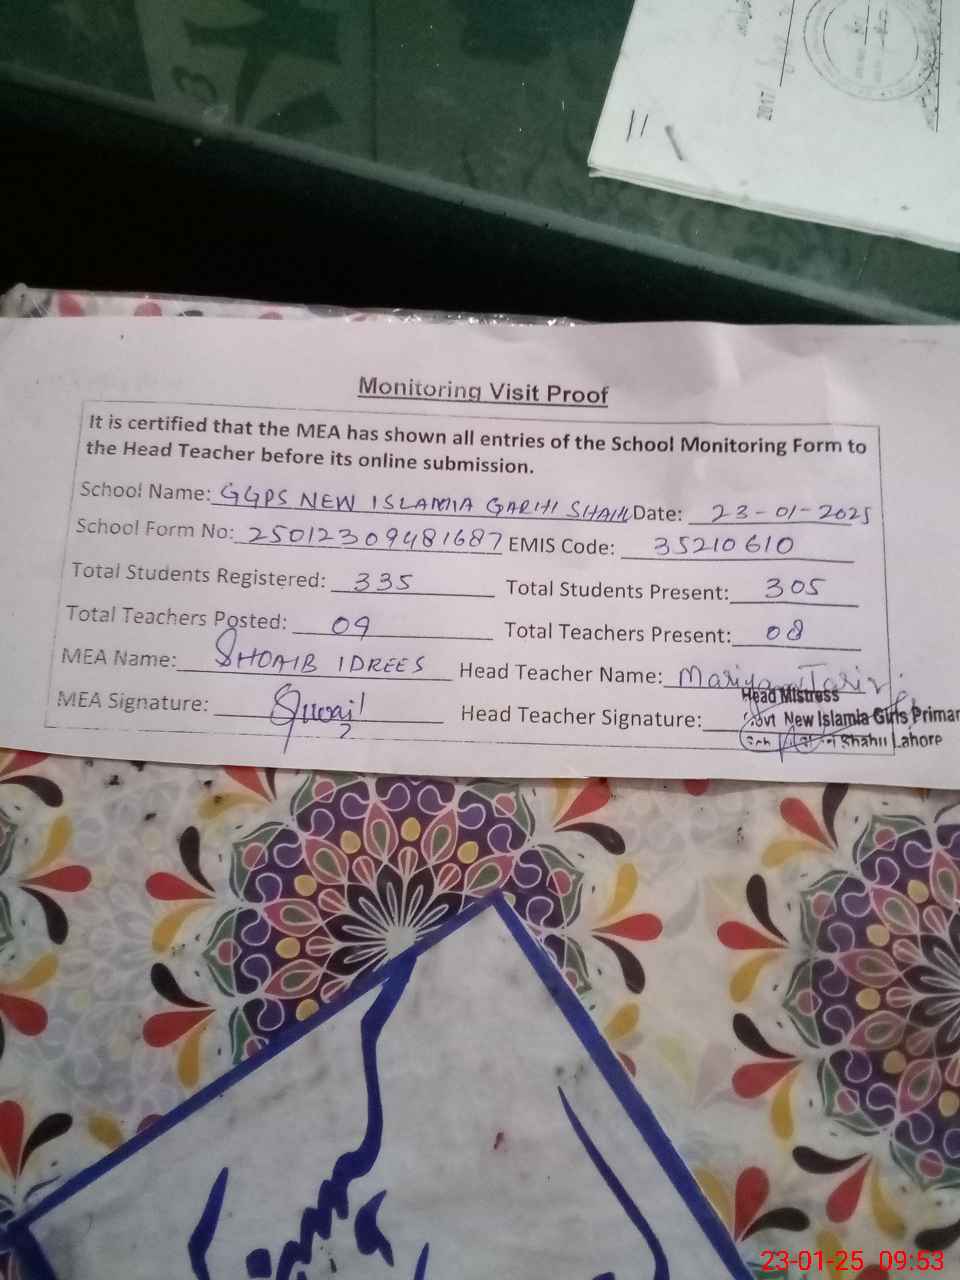 2017
11
Monitoring Visit Proof
It is certified that the MEA has shown all entries of the School Monitoring Form to
the Head Teacher before its online submission.
School Name: GGPS NEW ISLAMIA GARHI SHAHU Date: 23-01-2025
School Form No: 25012309481687 EMIS Code: 35210610
Total Students Registered: 335 Total Students Present: 305
Total Teachers Posted: 09 Total Teachers Present: 08
MEA Name: SHOAIB IDREES Head Teacher Name: Mariyam Tariq
MEA Signature: Head Teacher Signature:
Head Mistress
Govt New Islamia Girls Primar
Shahu Lahore
23-01-25 09:53